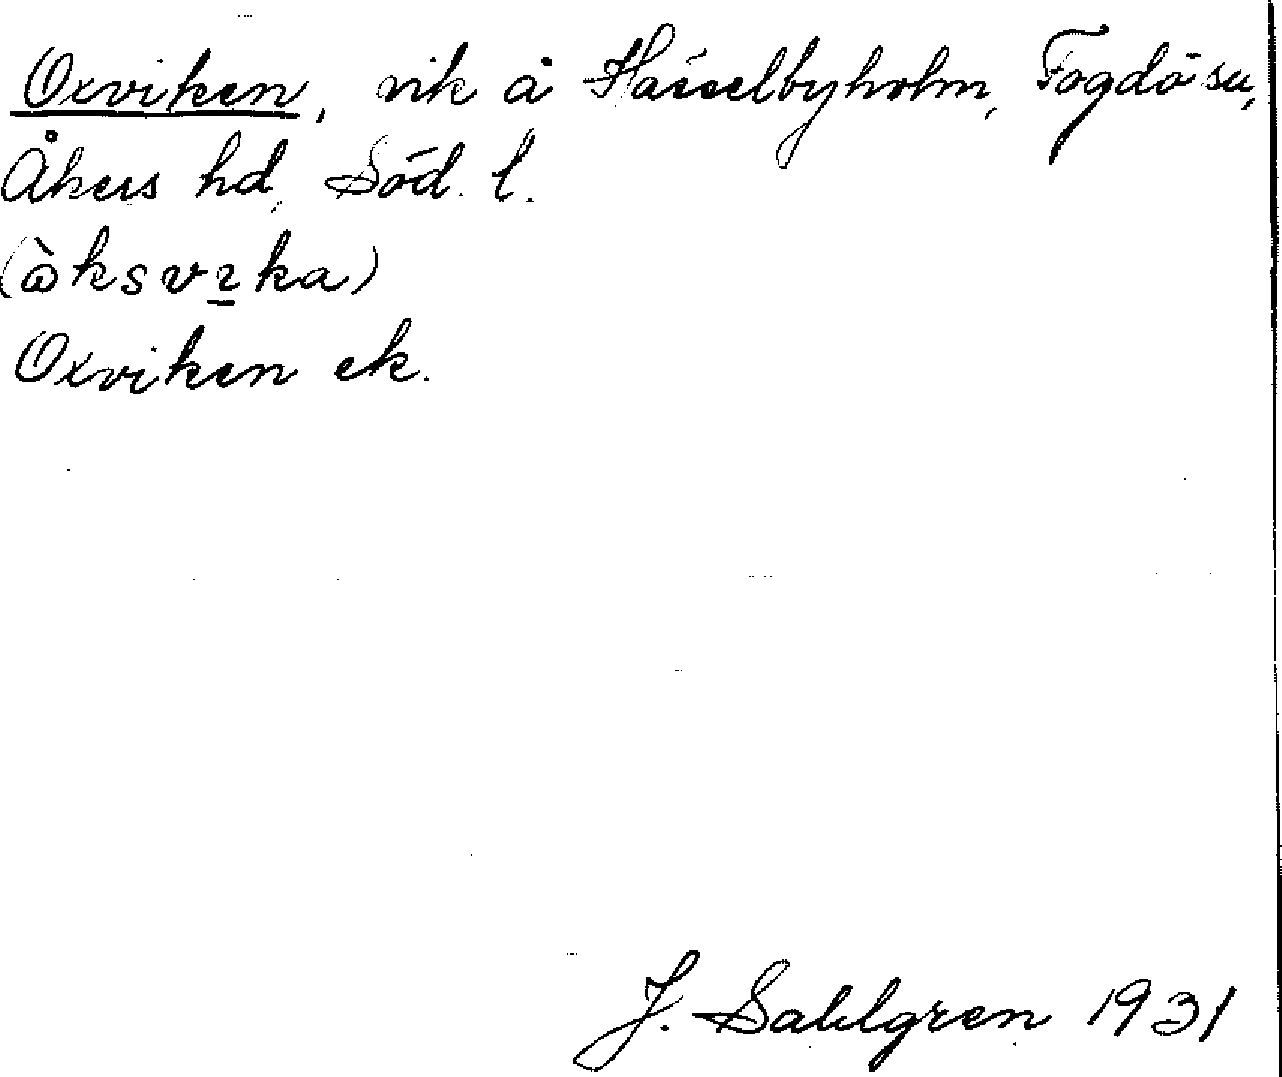 Oxviken, vik å Hässelbyholm, Fogdö sn,
Åkers hd, Söd. l.
(ὼksvɩka)
Oxviken ek.
J. Sahlgren 1931